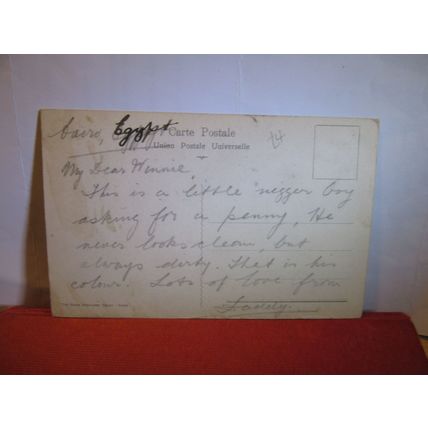 Cairo, Egypt Carte Postale 24
Union Postale Universelle
My Dear Winnie,
This is a little negger boy
asking for a penny. He
never looks clean, but
always dirty. That is his
colour. Lots of love from
Daddy.